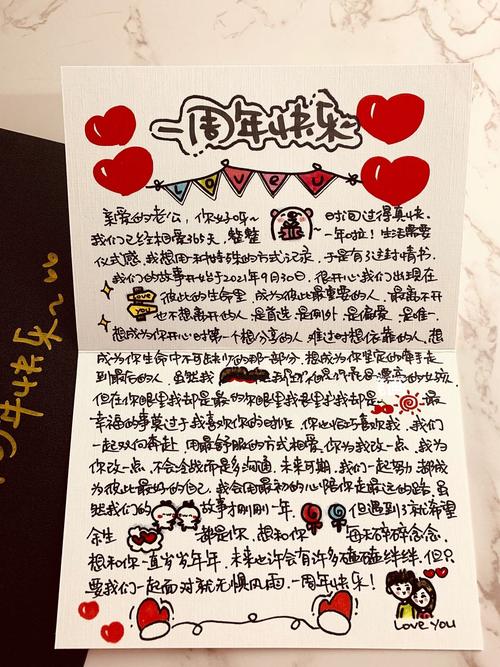 一周年快乐
Love u
亲爱的老公，你好呀～ 时间过得真快.
我们已经相爱365天，整整 一年啦！生活需要
仪式感，我想用一种特殊的方式记录，于是有了这封情书.
我们的故事开始于2021年9月30日，很开心我们出现在
Love you 彼此的生命里，成为彼此最重要的人，最离不开
也不想离开的人，是首选，是例外，是偏爱，是唯一，
想成为你开心时第一个想分享的人，难过时想依靠的人，想
成为你生命中不可缺少的那一部分，想成为你坚定的牵手走
到最后的人，虽然我 漂亮的女孩，
但在你眼里我却是最 最
幸福的事莫过于我喜欢你的时候，你也恰好喜欢我，我们
一起双向奔赴，用最舒服的方式相爱，你为我改一点，我为
你改一点，不会冷战而是多沟通，未来可期，我们一起努力，都成
为彼此最好的自己，我会用最初的心陪你走最远的路，虽
然我们的 故事才刚刚一年， 但遇到了就希望
余生 都是你，想和你 每天碎碎念念，
想和你一直岁岁年年，未来也许会有许多磕磕绊绊，但只
要我们一起面对就无惧风雨，一周年快乐！
LOVE YOU
周年快乐～